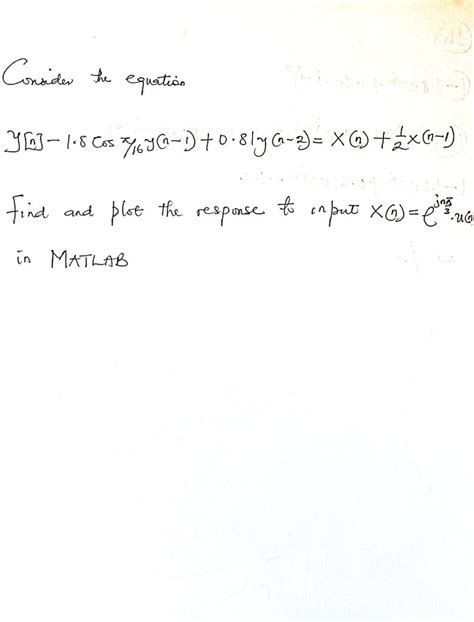 Consider the equation
y[n] - 1.8 Cos π/16 y(n-1) + 0.81y(n-2) = x(n) + 1/2 x(n-1)
find and plot the response to input x(n) = e^{jnπ/3}.u(n
in MATLAB